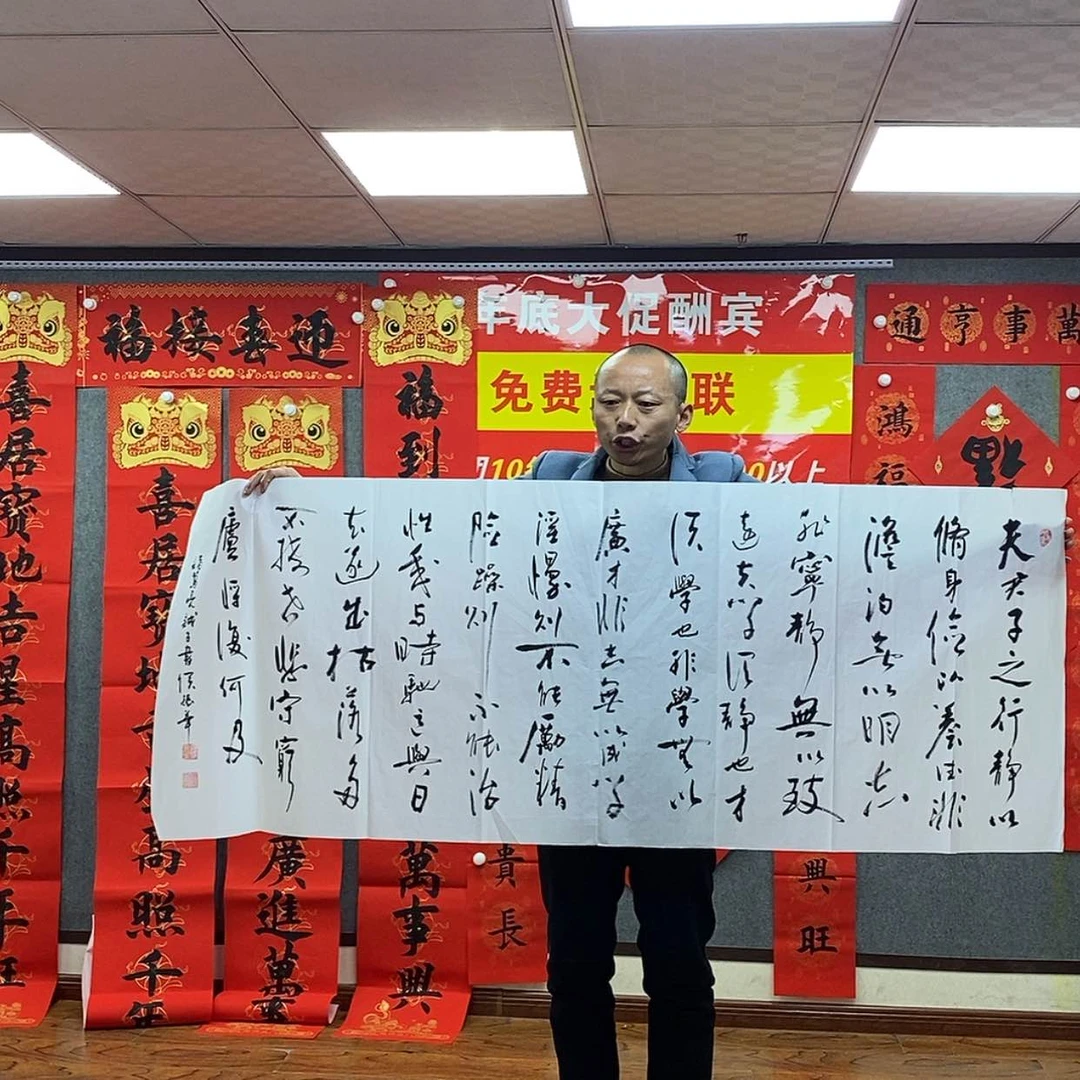 福接喜迎
喜居寶地吉星高照千年旺
喜居寶地
高照千年
廣進萬事
福到
萬事興
年底大促酬宾
免费
联
以上
通亨事萬
鴻
福
貴長
興旺
夫君子之行静以
脩身儉以養德非
澹泊無以明志
非寧静無以致
遠夫學須静也才
須學也非學無以
廣才非志無以成學
淫慢則不能勵精
險躁則不能治
性年与時馳意與日
去遂成枯落多
不接世悲守窮
廬将復何及
諸葛亮誡子書